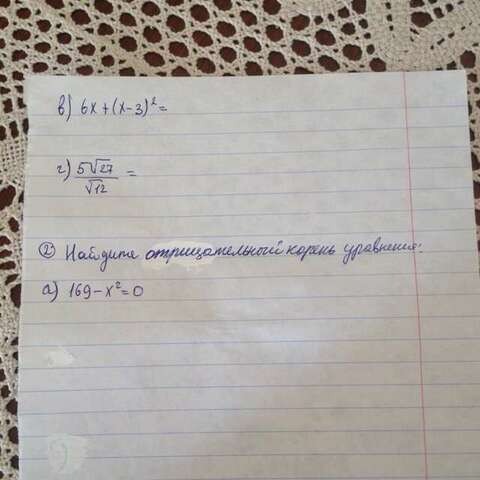 в) 6x+(x-3)²=
г) 5√27/√12 =
② Найдите отрицательный корень уравнения:
а) 169-x²=0